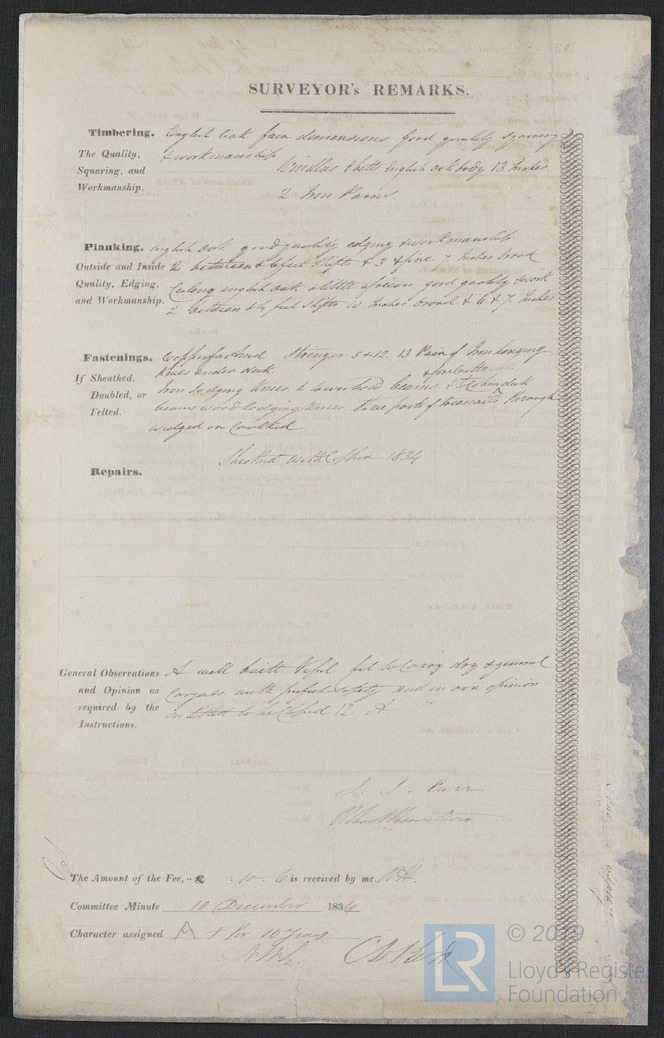 SURVEYOR's REMARKS.
Timbering. English Oak fair dimensions Good quality squaring
The Quality, & workmanship
Squaring, and Windlass & bitts English oak body 13 Inches
Workmanship. 2 Iron Pawls
Planking. English Oak good quality edging & workmanship
Outside and Inside 2 between & 6 feet shifts & 3 & five 7 Inches broad
Quality, Edging, Ceiling english oak & little african good quality & work
and Workmanship. 2 between & 4 feet shifts 10 Inches broad & 6 & 7 Inches
Fastenings. Copperfastned Stringer 5 & 12 13 Pair of Iron hanging
If Sheathed, Knees under deck
Doubled, or Iron lodging Knees to lower hold beams
Felted. beams wood lodging Knees. Four parts of treenails through
wedged or Caulked
Sheathed with Copper 1834
Repairs.
General Observations A well built Vessel fit to Carry dry & general
and Opinion as Cargoes with perfect safety and in our opinion
required by the entitled to be Classed 12 A
Instructions.
J. J. Parr
The Amount of the Fee, „ £ : 10 . 6 is received by me
Committee Minute 10 December 1834
Character assigned A 1 for 10 Years
LR
© 2019
Lloyd's Register
Foundation